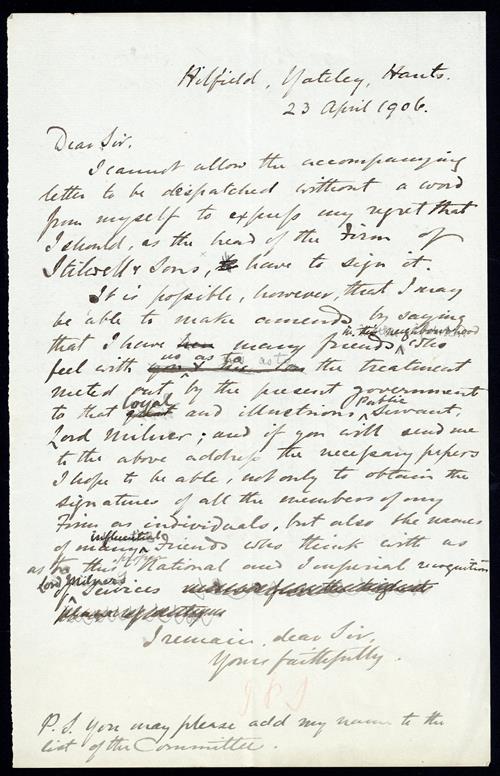 Hilfield, Yateley, Hants.
23 April 1906.
Dear Sir,
I cannot allow the accompanying
letter to be dispatched without a word
from myself to express my regret that
I should, as the head of the Firm of
Stilwell & Sons, to have to sign it.
It is possible, however, that I may
be able to make amends by saying
in this neighbourhood
that I have many friends who
us as to
feel with the treatment
meted out by the present government
loyal Public
to that great and illustrious Servant,
Lord Milner; and if you will send me
to the above address the necessary papers
I hope to be able, not only to obtain the
signatures of all the members of my
Firm as individuals, but also the names
influential
of many Friends who think with us
as to this National and Imperial recognition
Lord Milner's
of services
I remain, dear Sir,
Yours faithfully.
P.S. You may please add my name to the
list of the Committee.